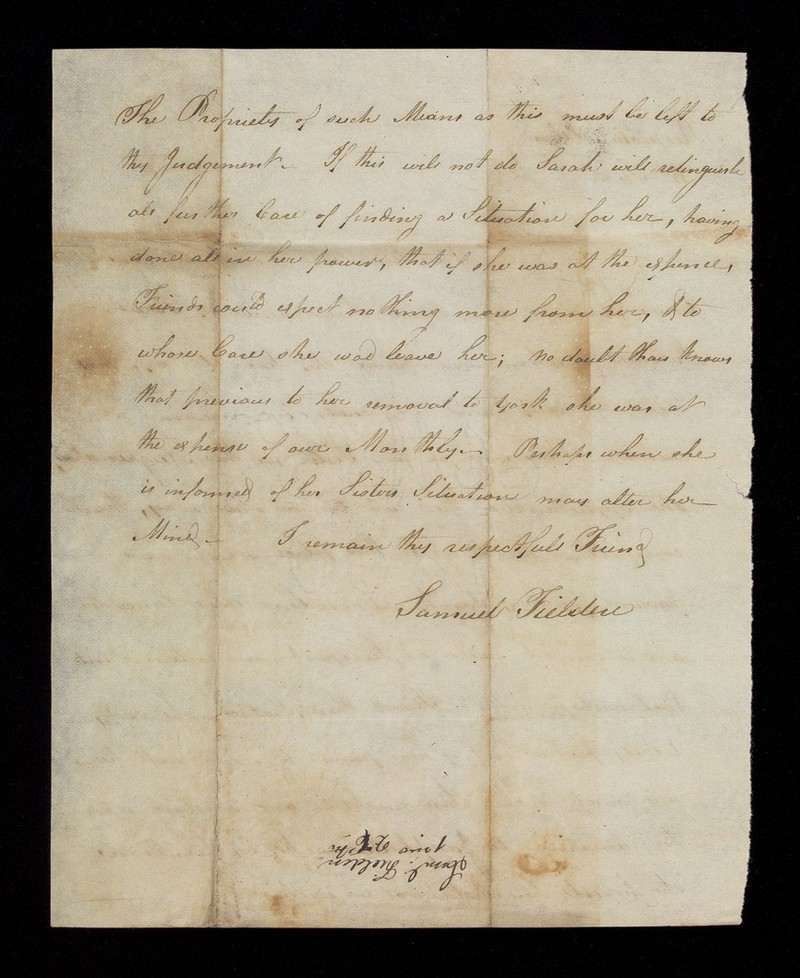 The Propriety of such Means as this must be left to
thy Judgement. If this will not do Sarah will relinguish
all further Care of finding a Situation for her, having
done all in her power, that if she was at the expence,
Friends could expect nothing more from her, & to
whose Care she wod leave her; no doubt thou knows
that previous to her removal to York she was at
the expense of our Monthly. Perhaps when she
is informed of her Sisters Situation may alter her
Mind — I remain thy respectfull Friend
Samuel Fielden
Saml. Fielden